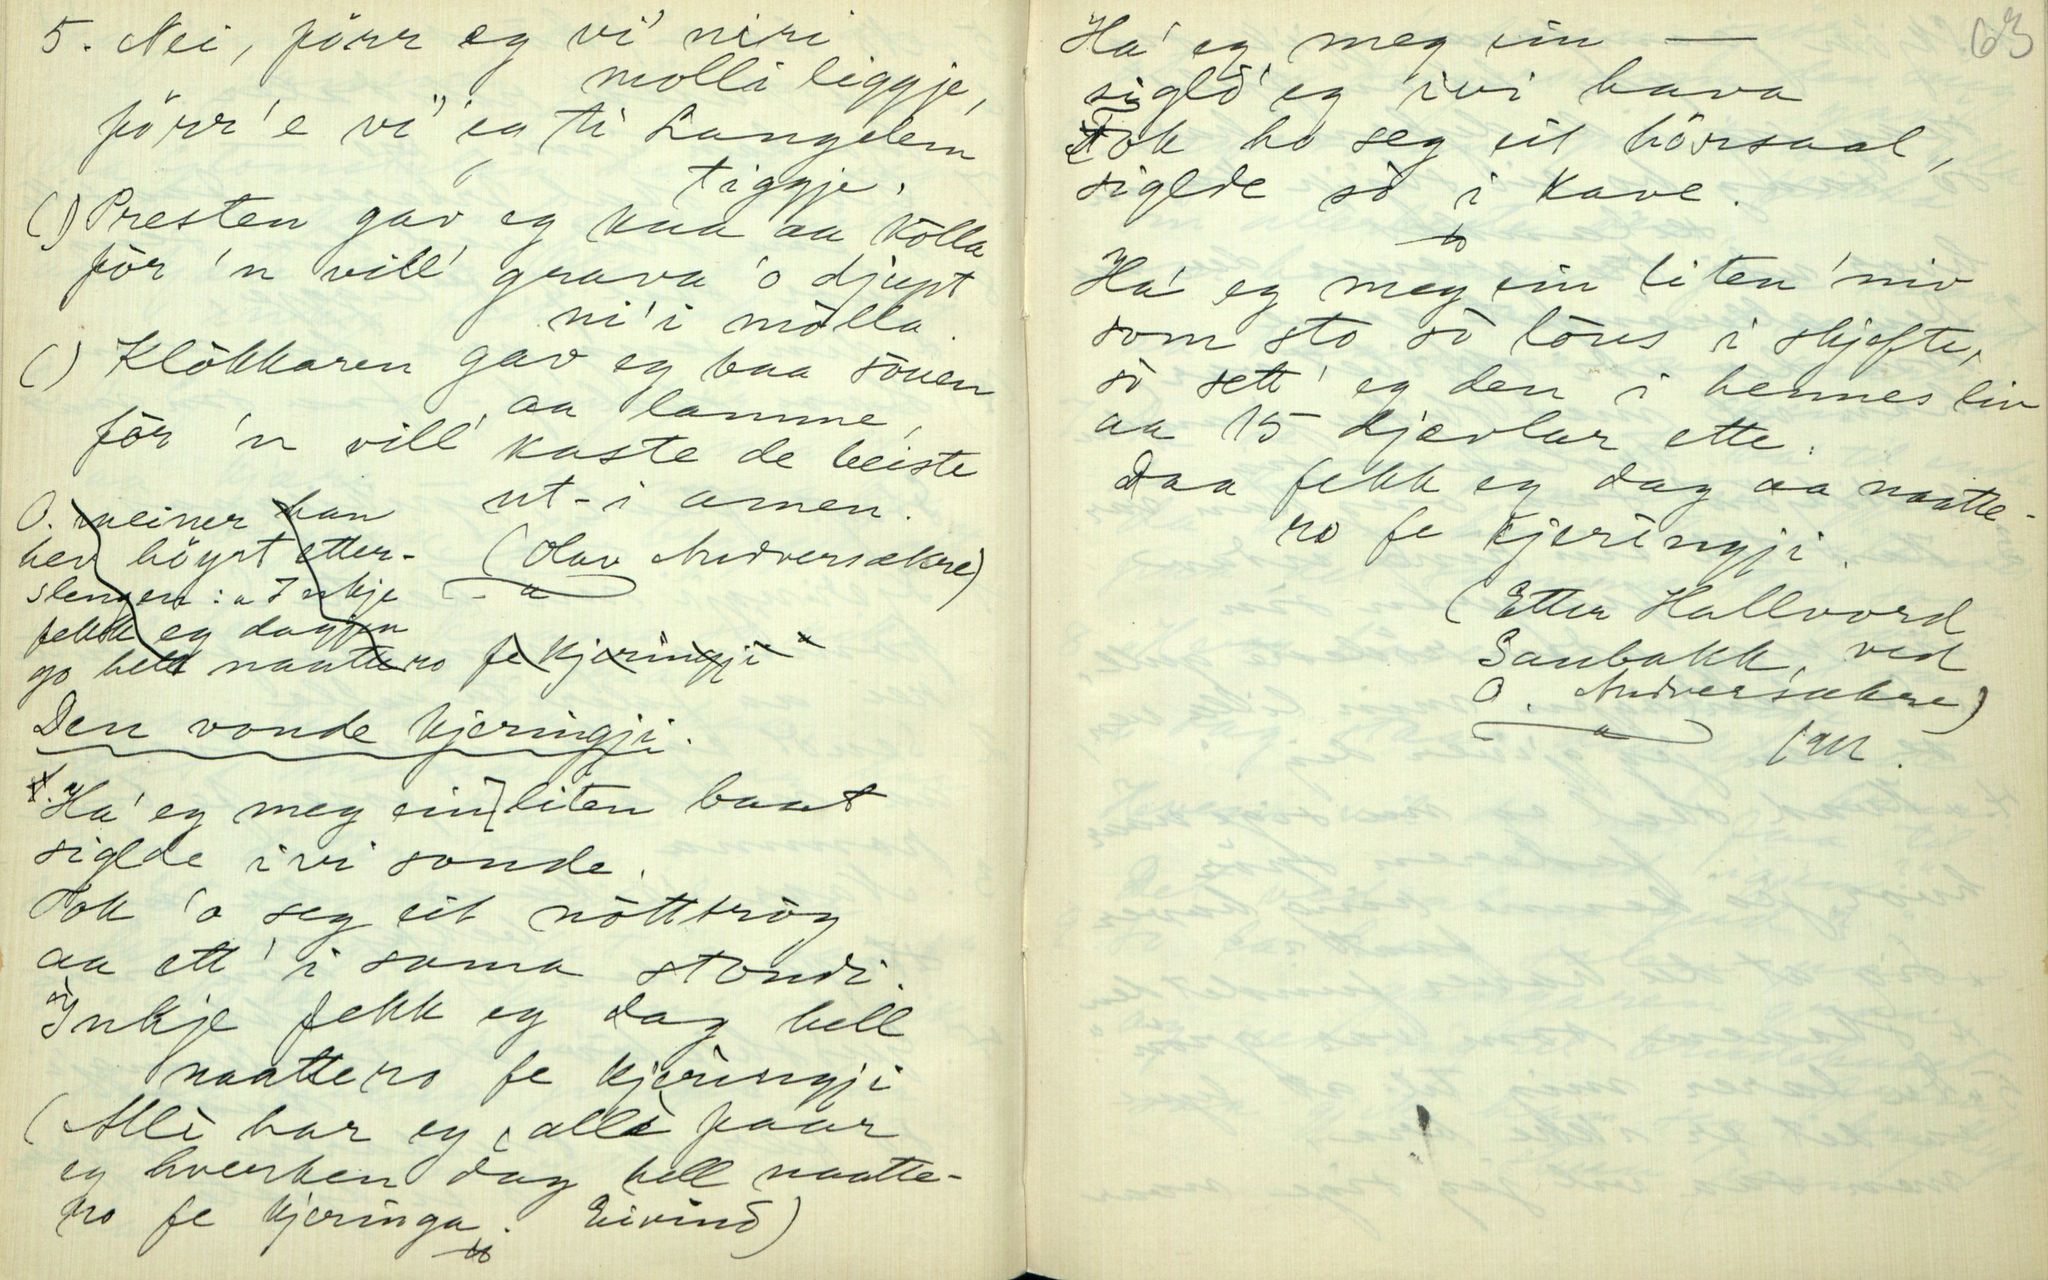 5. Nei, förr eg vi' niri
molli liggje,
förr 'e vi' eg ti Langelem
tiggje.
(1) Presten gav eg kua aa kölla
för 'n vill' grava 'o djupt
ni' i mölla.
( ) Klökkaren gav eg baa söuen
aa lamme,
för 'n vill' kaste de beiste
ut-i amen.
(Olav Midversækre)
O. meiner han
hev höyrt etter-
slengen: "Inkje
fekk eg dagjen
go hell naattero fe kjeringji"
Den vonde kjeringji.
1. Ha' eg meg ein] liten baat
siglde ivi sonde.
Tok 'o seg eit nöttrög
aa ett' i sama stondi.
Inkje fekk eg dag hell
naattero fe kjeringji
(Alli har eg, alli faar
eg hverken dag hell naatte-
ro fe kjeringa. Eivind)
63
Ha' eg meg ein —
siglö' eg ivi hava
Tok ho seg eit hörsaal,
siglde sö i kave.
Ha' eg meg ein liten 'niv
som sto sö löus i skjefte,
sö sett' eg den i hennes liv
aa 15 djevlar ette.
Daa fekk eg dag aa naatte-
ro fe kjeringji.
(Etter Hallvord
Sanbakk, ved
O. Midversækre)
1911.